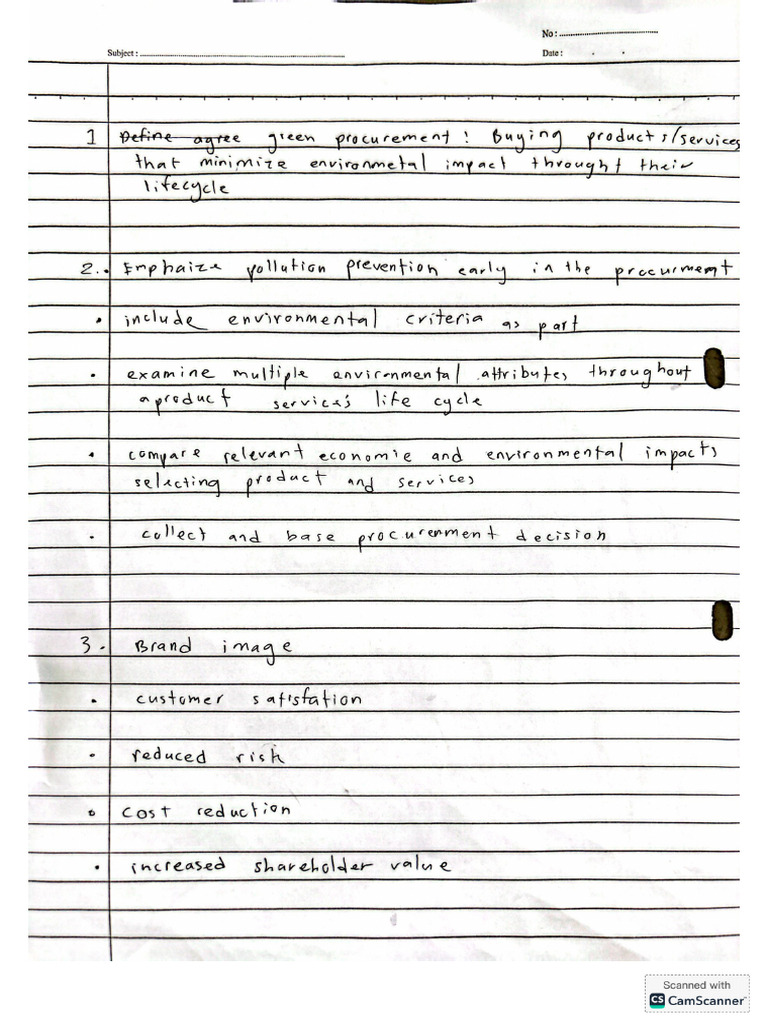 No :
Subject :
Date :
1 Define agree green procurement : Buying products/services
that minimize environmetal impact throught their
lifecycle
2. • Emphaize pollution prevention early in the procurment
• include environmental criteria as part
• examine multiple environmental attributes throughout
aproduct services's life cycle
• compare relevant economic and environmental impacts
selecting product and services
• collect and base procurenment decision
3. Brand image
• customer satisfation
• reduced risk
• cost reduction
• increased shareholder value
Scanned with
CS CamScanner